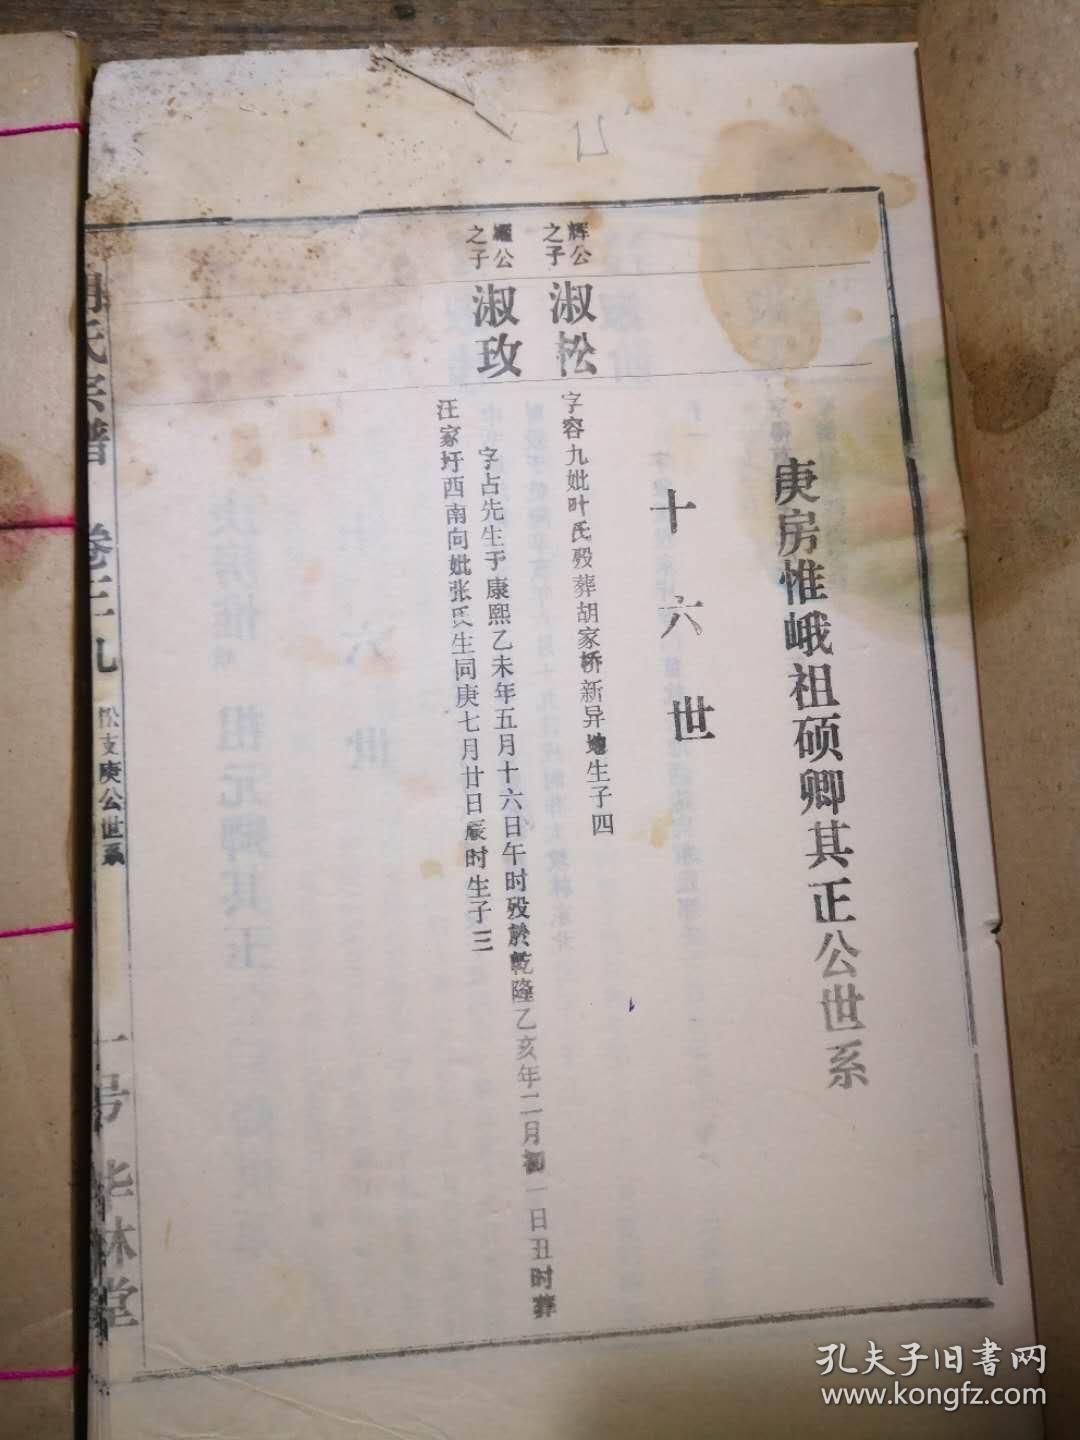 庚房惟峨祖硕卿其正公世系
十六世
辉公之子
淑松
字容九妣叶氏殁葬胡家桥新异地生子四
公之子
淑玫
字占先生于康熙乙未年五月十六日午时殁於乾隆乙亥年二月初一日丑时葬
汪家圩西南向妣张氏生同庚七月廿日辰时生子三
胡氏宗谱
松支庚公世系
一号
华林堂
孔夫子旧书网
www.kongfz.com